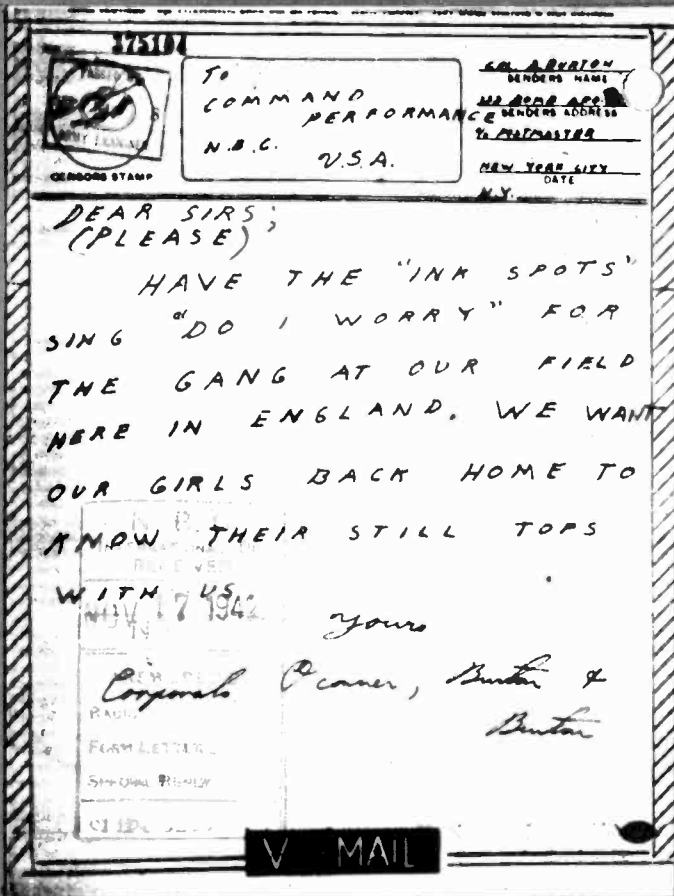 375104
PASSED BY
ARMY EXAMINER
CENSORS STAMP
To
COMMAND
PERFORMANCE
N.B.C.
U.S.A.
CPL A BURTON
SENDERS NAME
BOMB
SENDERS ADDRESS
% POSTMASTER
NEW YORK CITY
DATE
N.Y.
DEAR SIRS;
(PLEASE)
HAVE THE "INK SPOTS"
SING "DO I WORRY" FOR
THE GANG AT OUR FIELD
HERE IN ENGLAND. WE WANT
OUR GIRLS BACK HOME TO
KNOW THEIR STILL TOPS
WITH US.
Yours
Corporals O'conner, Burton &
Burton
N. B. C.
RECEIVED
NOV 17 1942
RADIO
FORM LETTER
SPECIAL REPLY
V MAIL